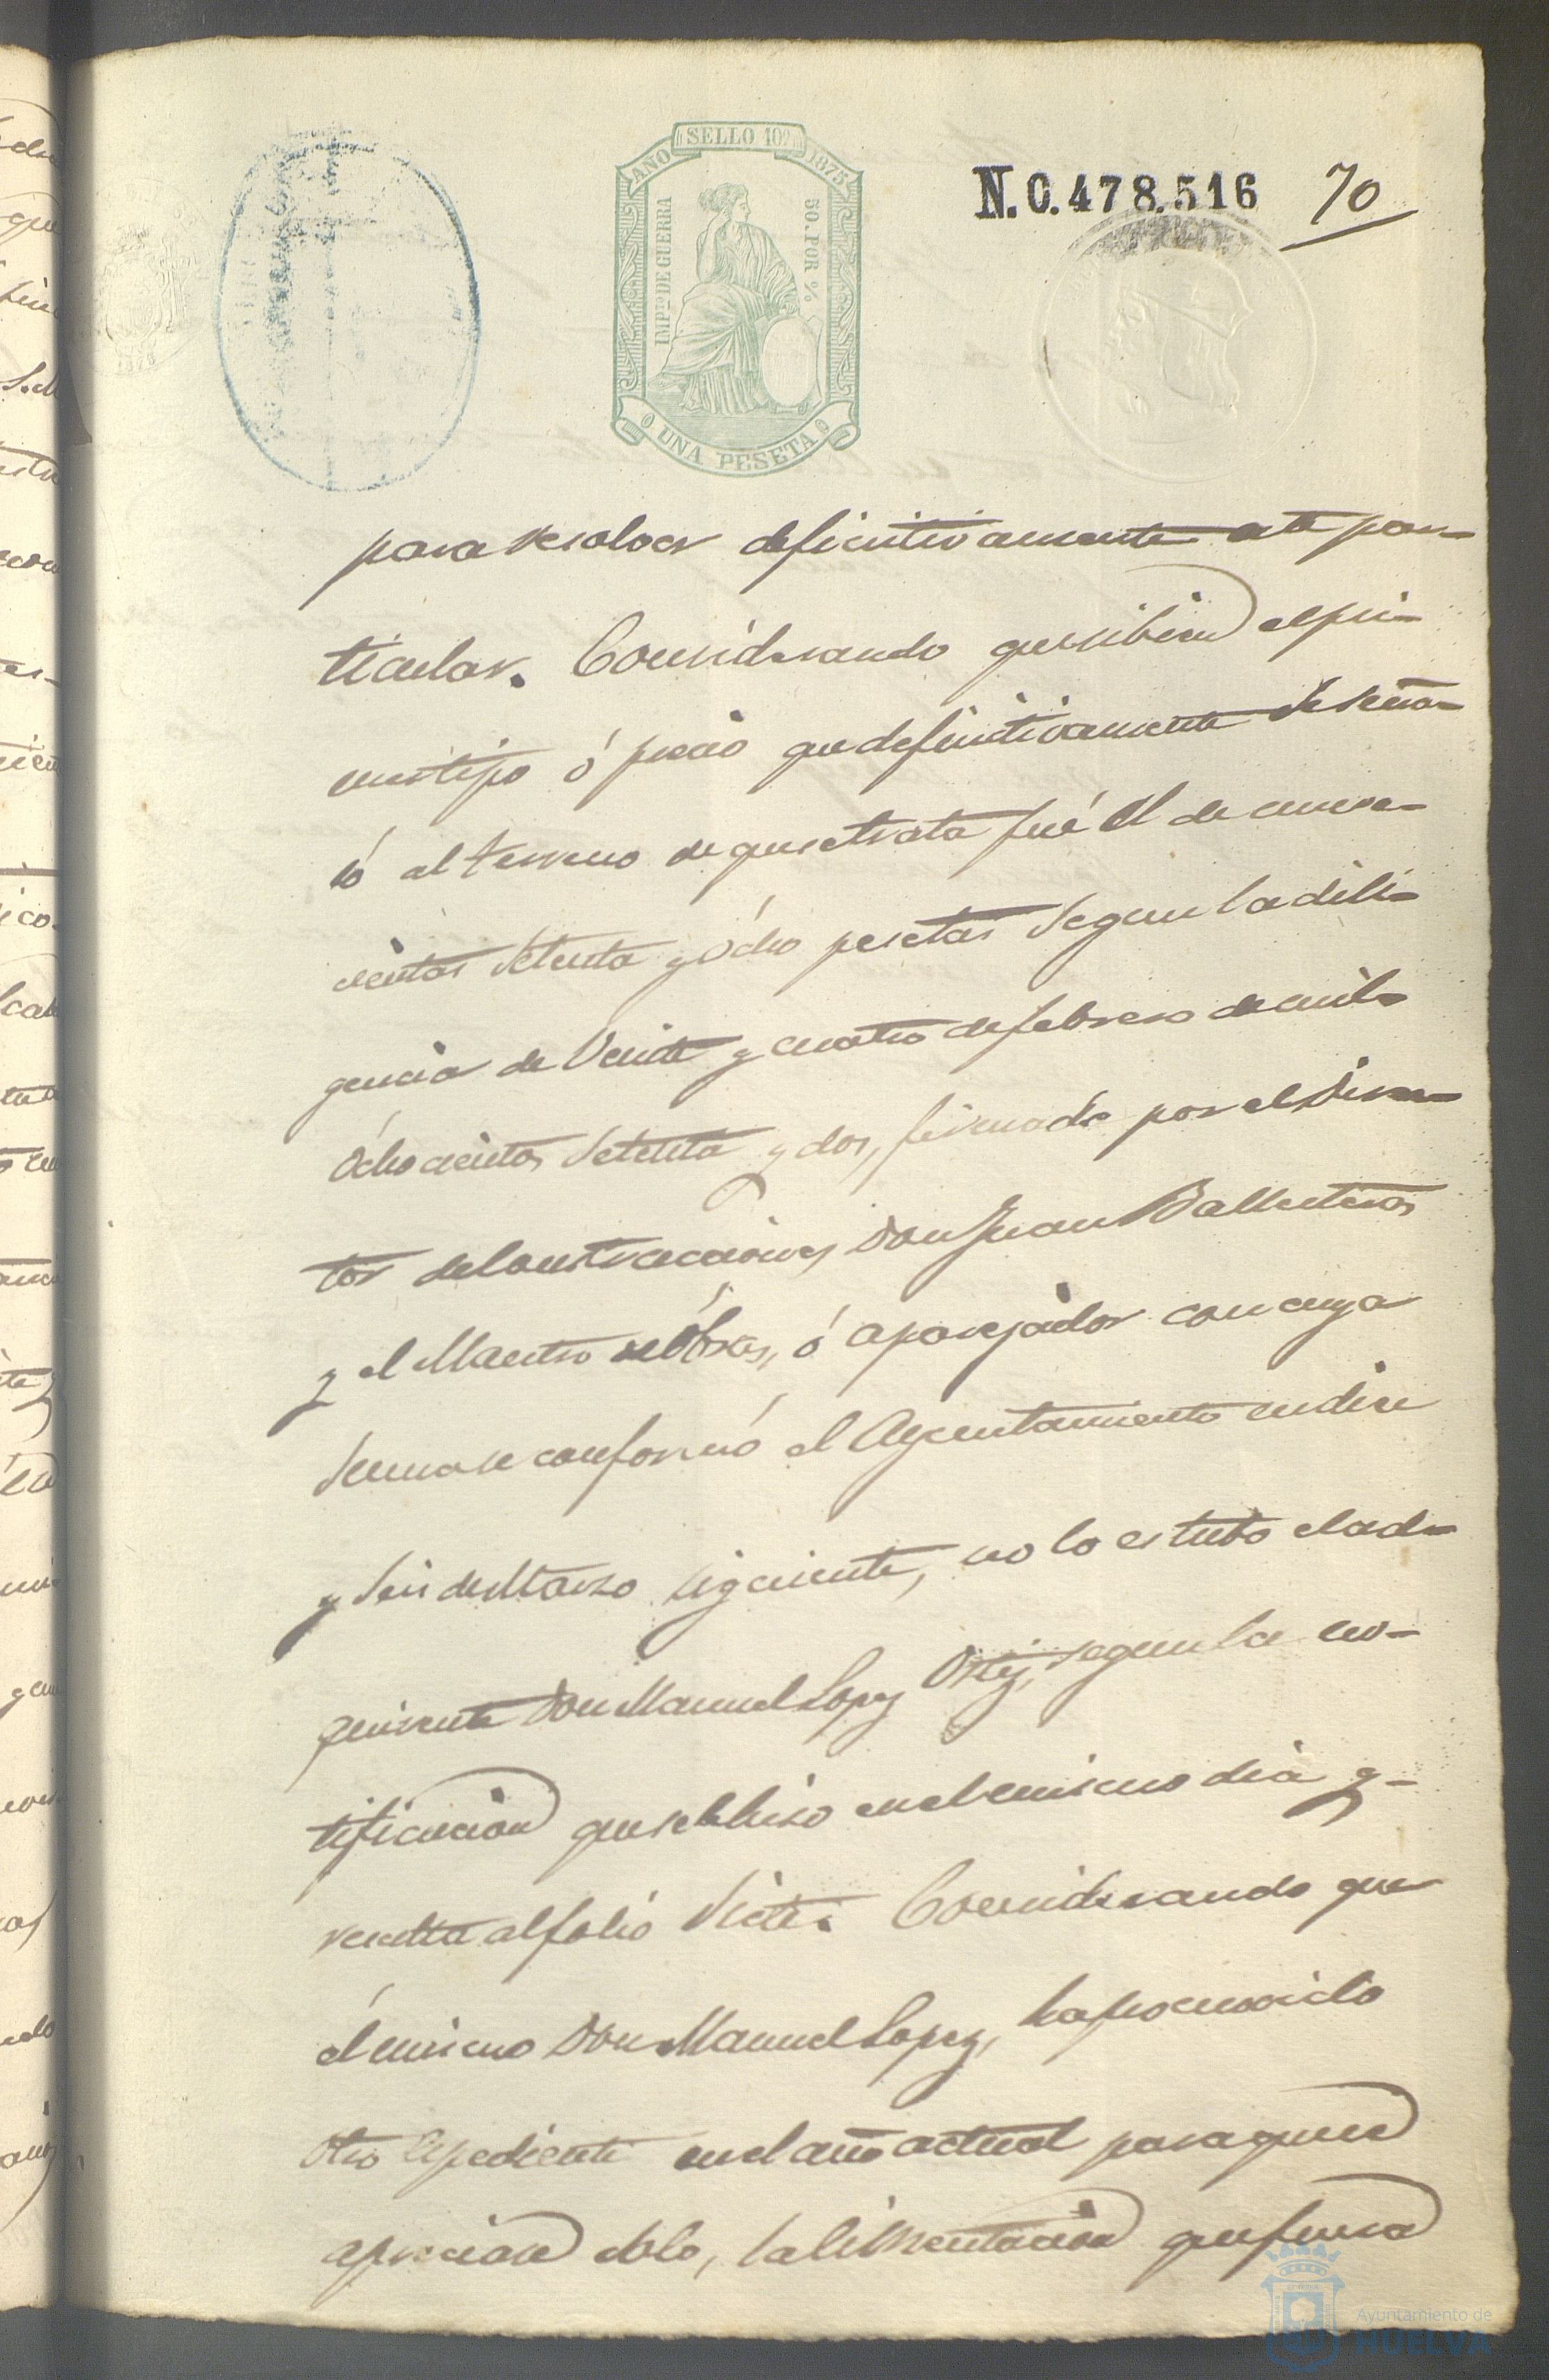 SELLO 10º
AÑO 1875
IMPtº DE GUERRA
50. POR %
UNA PESETA
N.0.478.516 70
para resolver definitivamente este par-
ticular. Considerando que si bien el pri-
mer tipo ó precio que definitivamente se seña-
ló al terreno de que se trata fué el de nueve-
cientas setenta y ocho pesetas segun la dili-
gencia de Veinte y cuatro de febrero de mil
Ochocientos Setenta y dos, firmada por el Direc-
tor de Construcciones Don Juan Ballesteros
y el Maestro de Obras, ó aparejador con cuya
suma se conformó el Ayuntamiento en diez
y seis de Marzo siguiente, no lo estubo el ad-
quirente Don Manuel Lopez segun la no-
tificacion que se le hizo en el mismo dia y-
resulta al folio siete. Considerando que
el mismo Don Manuel Lopez, ha promovido
otro espediente en el año actual para que
la que
Ayuntamiento de
HUELVA